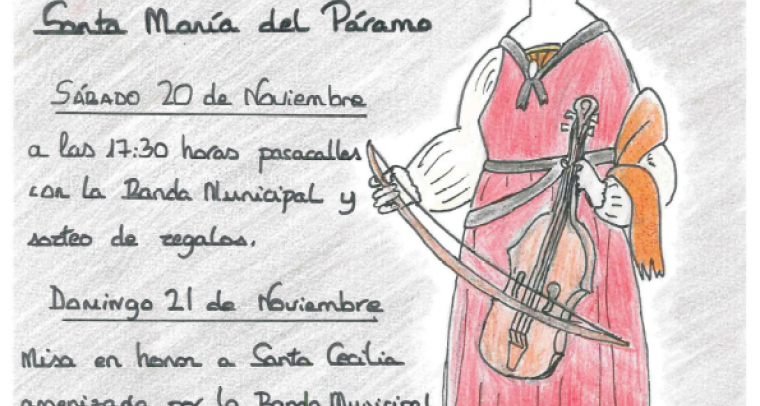 Santa María del Páramo
SÁBADO 20 de Noviembre
a las 17:30 horas pasacalles
con la Banda Municipal y
sorteo de regalos.
Domingo 21 de Noviembre
Misa en honor a Santa Cecilia
amenizada por la Banda Municipal